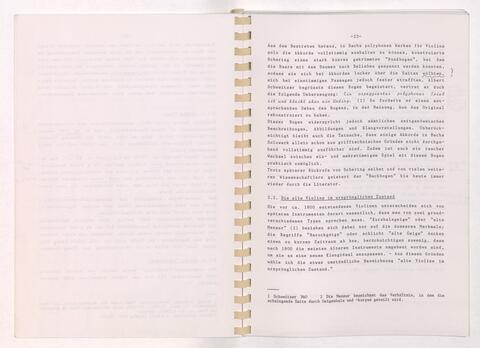 -23-
Aus dem Bestreben heraus, in Bachs polyphonen Werken für Violine
solo die Akkorde vollstimmig aushalten zu können, konstruierte
Schering einen stark konvex gekrümmten "Rundbogen", bei dem
die Haare mit dem Daumen nach Belieben gespannt werden konnten,
sodass sie sich bei Akkorden locker über die Saiten wölbten,
sich bei einstimmigen Passagen jedoch fester strafften. Albert
Schweitzer begrüsste diesen Bogen begeistert, vertrat er doch
die folgende Ueberzeugung: Ein arpeggiertes polyphones Spiel
ist und bleibt aber ein Unding. (1) So forderte er einen ent-
sprechenden Umbau des Bogens, in der Meinung, das Original
rekonstruiert zu haben.
Dieser Bogen widerspricht jedoch sämtlichen zeitgenössischen
Beschreibungen, Abbildungen und Klangvorstellungen. Unberück-
sichtigt bleibt auch die Tatsache, dass einige Akkorde in Bachs
Solowerk allein schon aus grifftechnischen Gründen nicht durchge-
hend vollstimmig ausführbar sind. Zudem ist auch ein rascher
Wechsel zwischen ein- und mehrstimmigem Spiel mit diesem Bogen
praktisch unmöglich.
Trotz späterer Rückrufe von Schering selbst und von vielen weite-
ren Wissenschaftlern geistert der "Bachbogen" bis heute immer
wieder durch die Literatur.
2.2. Die alte Violine im ursprünglichen Zustand
Die vor ca. 1800 entstandenen Violinen unterscheiden sich von
späteren Instrumenten derart wesentlich, dass man von zwei grund-
verschiedenen Typen sprechen muss. "Kurzhalsgeige" oder "alte
Mensur" (2) beziehen sich dabei nur auf die äusseren Merkmale;
die Begriffe "Barockgeige" oder schlicht "alte Geige" decken
einen zu kurzen Zeitraum ab bzw. berücksichtigen zuwenig, dass
nach 1800 die meisten älteren Instrumente umgebaut worden sind,
um sie an eine neues Klangideal anzupassen. - Aus diesen Gründen
wähle ich die etwas umständliche Bezeichnung "alte Violine im
ursprünglichen Zustand."
1 Schweitzer 340 2 Die Mensur bezeichnet das Verhältnis, in dem die
schwingende Saite durch Geigenhals und -korpus geteilt wird.